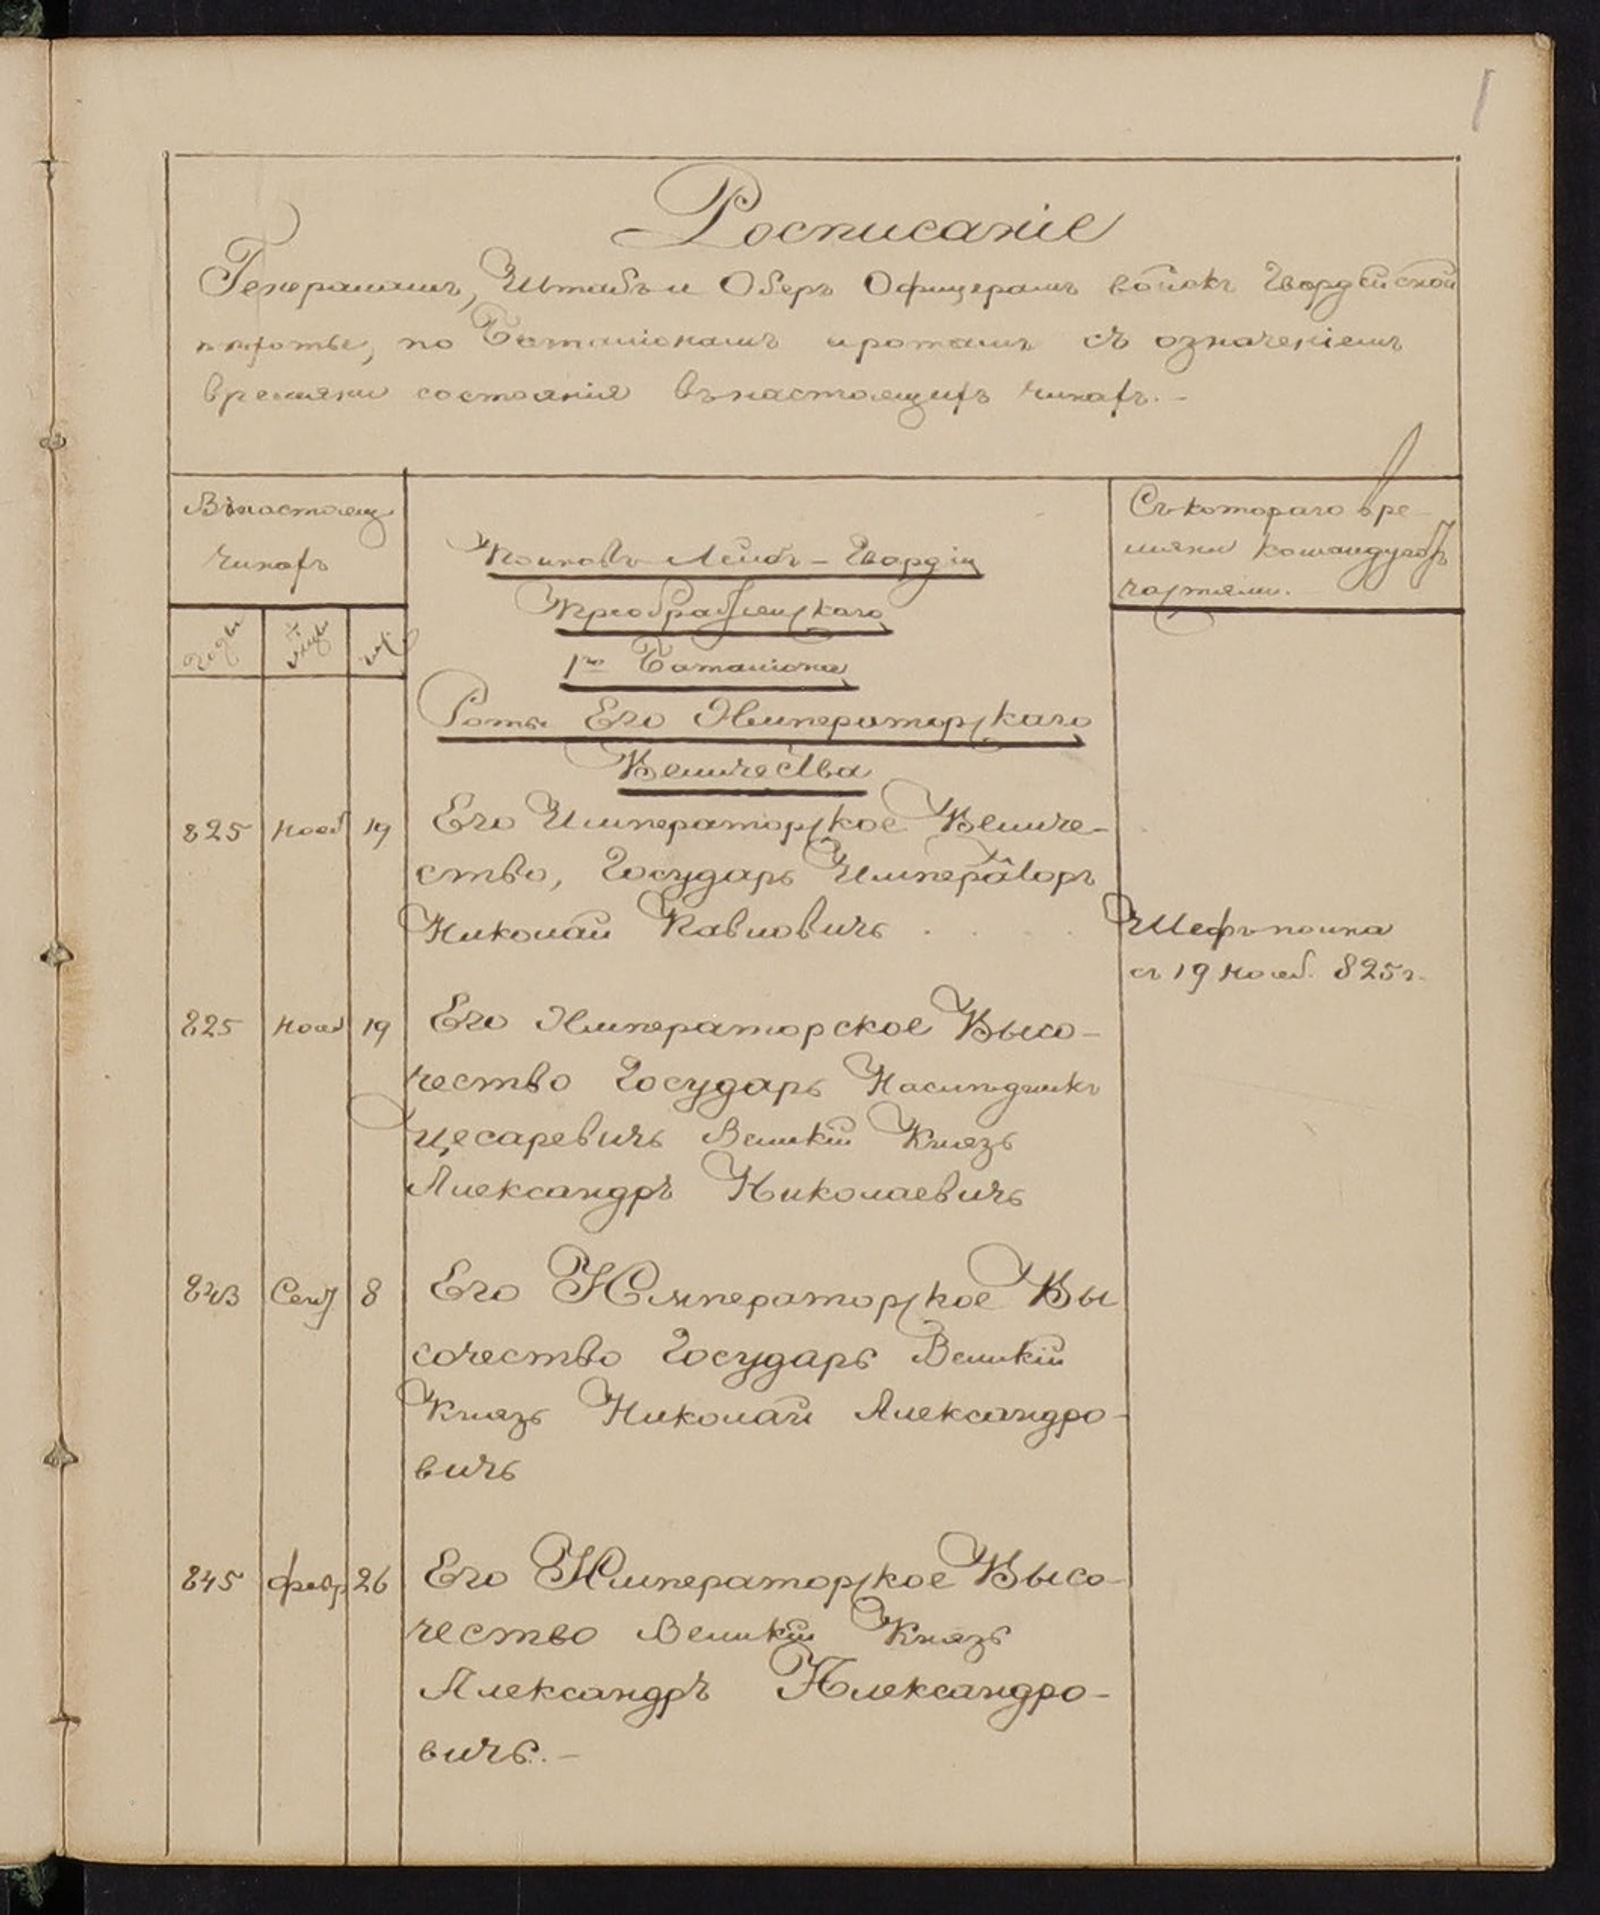 1
Росписаніе
Генераламъ, Штабъ и Оберъ Офицерамъ войскъ Гвардейской
пехоты, по Баталіонамъ и ротамъ съ означеніемъ
времяни состоянія въ настоящихъ чинахъ. -
Въ настоящ
чинахъ
Годы
числ
Полковъ Лейбъ - Гвардіи
Преображенскаго
1го Баталіона
Роты Его Императорскаго
Величества
Съ котораго вре-
мяни командуютъ
частями.
825 Нояб 19 Его Императорское Величе-
ство, Государь Императоръ
Николай Павловичь . . . .
Шефъ полка
съ 19 Нояб. 825 г.
825 Нояб 19 Его Императорское Высо-
чество Государь Наследникъ
Цесаревичь Великій Князь
Александръ Николаевичь
843 Сент 8 Его Императорское Вы
сочество Государь Великій
Князь Николай Александро-
вичь
845 февр 26 Его Императорское Высо-
чество Великій Князь
Александръ Александро-
вичь. -